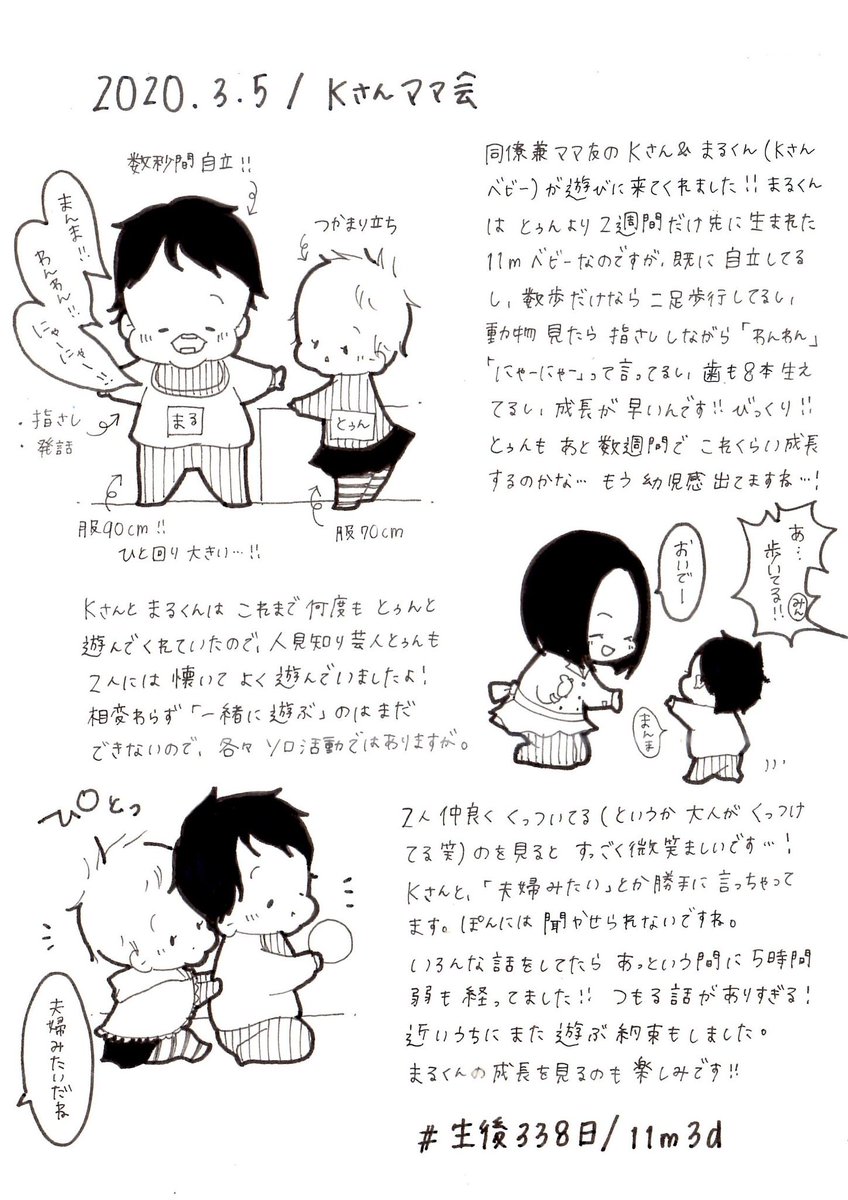 2020.3.5/Kさんママ会
数秒間自立!!
つかまり立ち
まんま!!
わんわん!!
にゃーにゃー!!
まる
とぅん
・指さし
・発話
服90cm!!
ひと回り大きい…!!
服70cm
同僚兼ママ友のKさん&まるくん(Kさん
ベビー)が遊びに来てくれました!!まるくん
はとぅんより2週間だけ先に生まれた
11mベビーなのですが、既に自立してる
し、数歩だけなら二足歩行してるし、
動物見たら指さししながら「わんわん」
「にゃーにゃー」って言ってるし、歯も8本生え
てるし、成長が早いんです!!びっくり!!
とぅんもあと数週間でこれくらい成長
するのかな…もう幼児感出てますね…!
Kさんとまるくんはこれまで何度もとぅんと
遊んでくれていたので、人見知り芸人とぅんも
2人には懐いてよく遊んでいましたよ!
相変わらず「一緒に遊ぶ」のはまだ
できないので、各々ソロ活動ではありますが。
おいでー
あ…
歩いてる!!
みん
まんま
ぴとっ
夫婦みたいだね
2人仲良くくっついてる(というか大人がくっつけ
てる笑)のを見るとすっごく微笑ましいです…!
Kさんと、「夫婦みたい」とか勝手に言っちゃって
ます。ぽんには聞かせられないですね。
いろんな話をしてたらあっという間に5時間
弱も経ってました!!つもる話がありすぎる!
近いうちにまた遊ぶ約束もしました。
まるくんの成長を見るのも楽しみです!!
#生後338日/11m3d